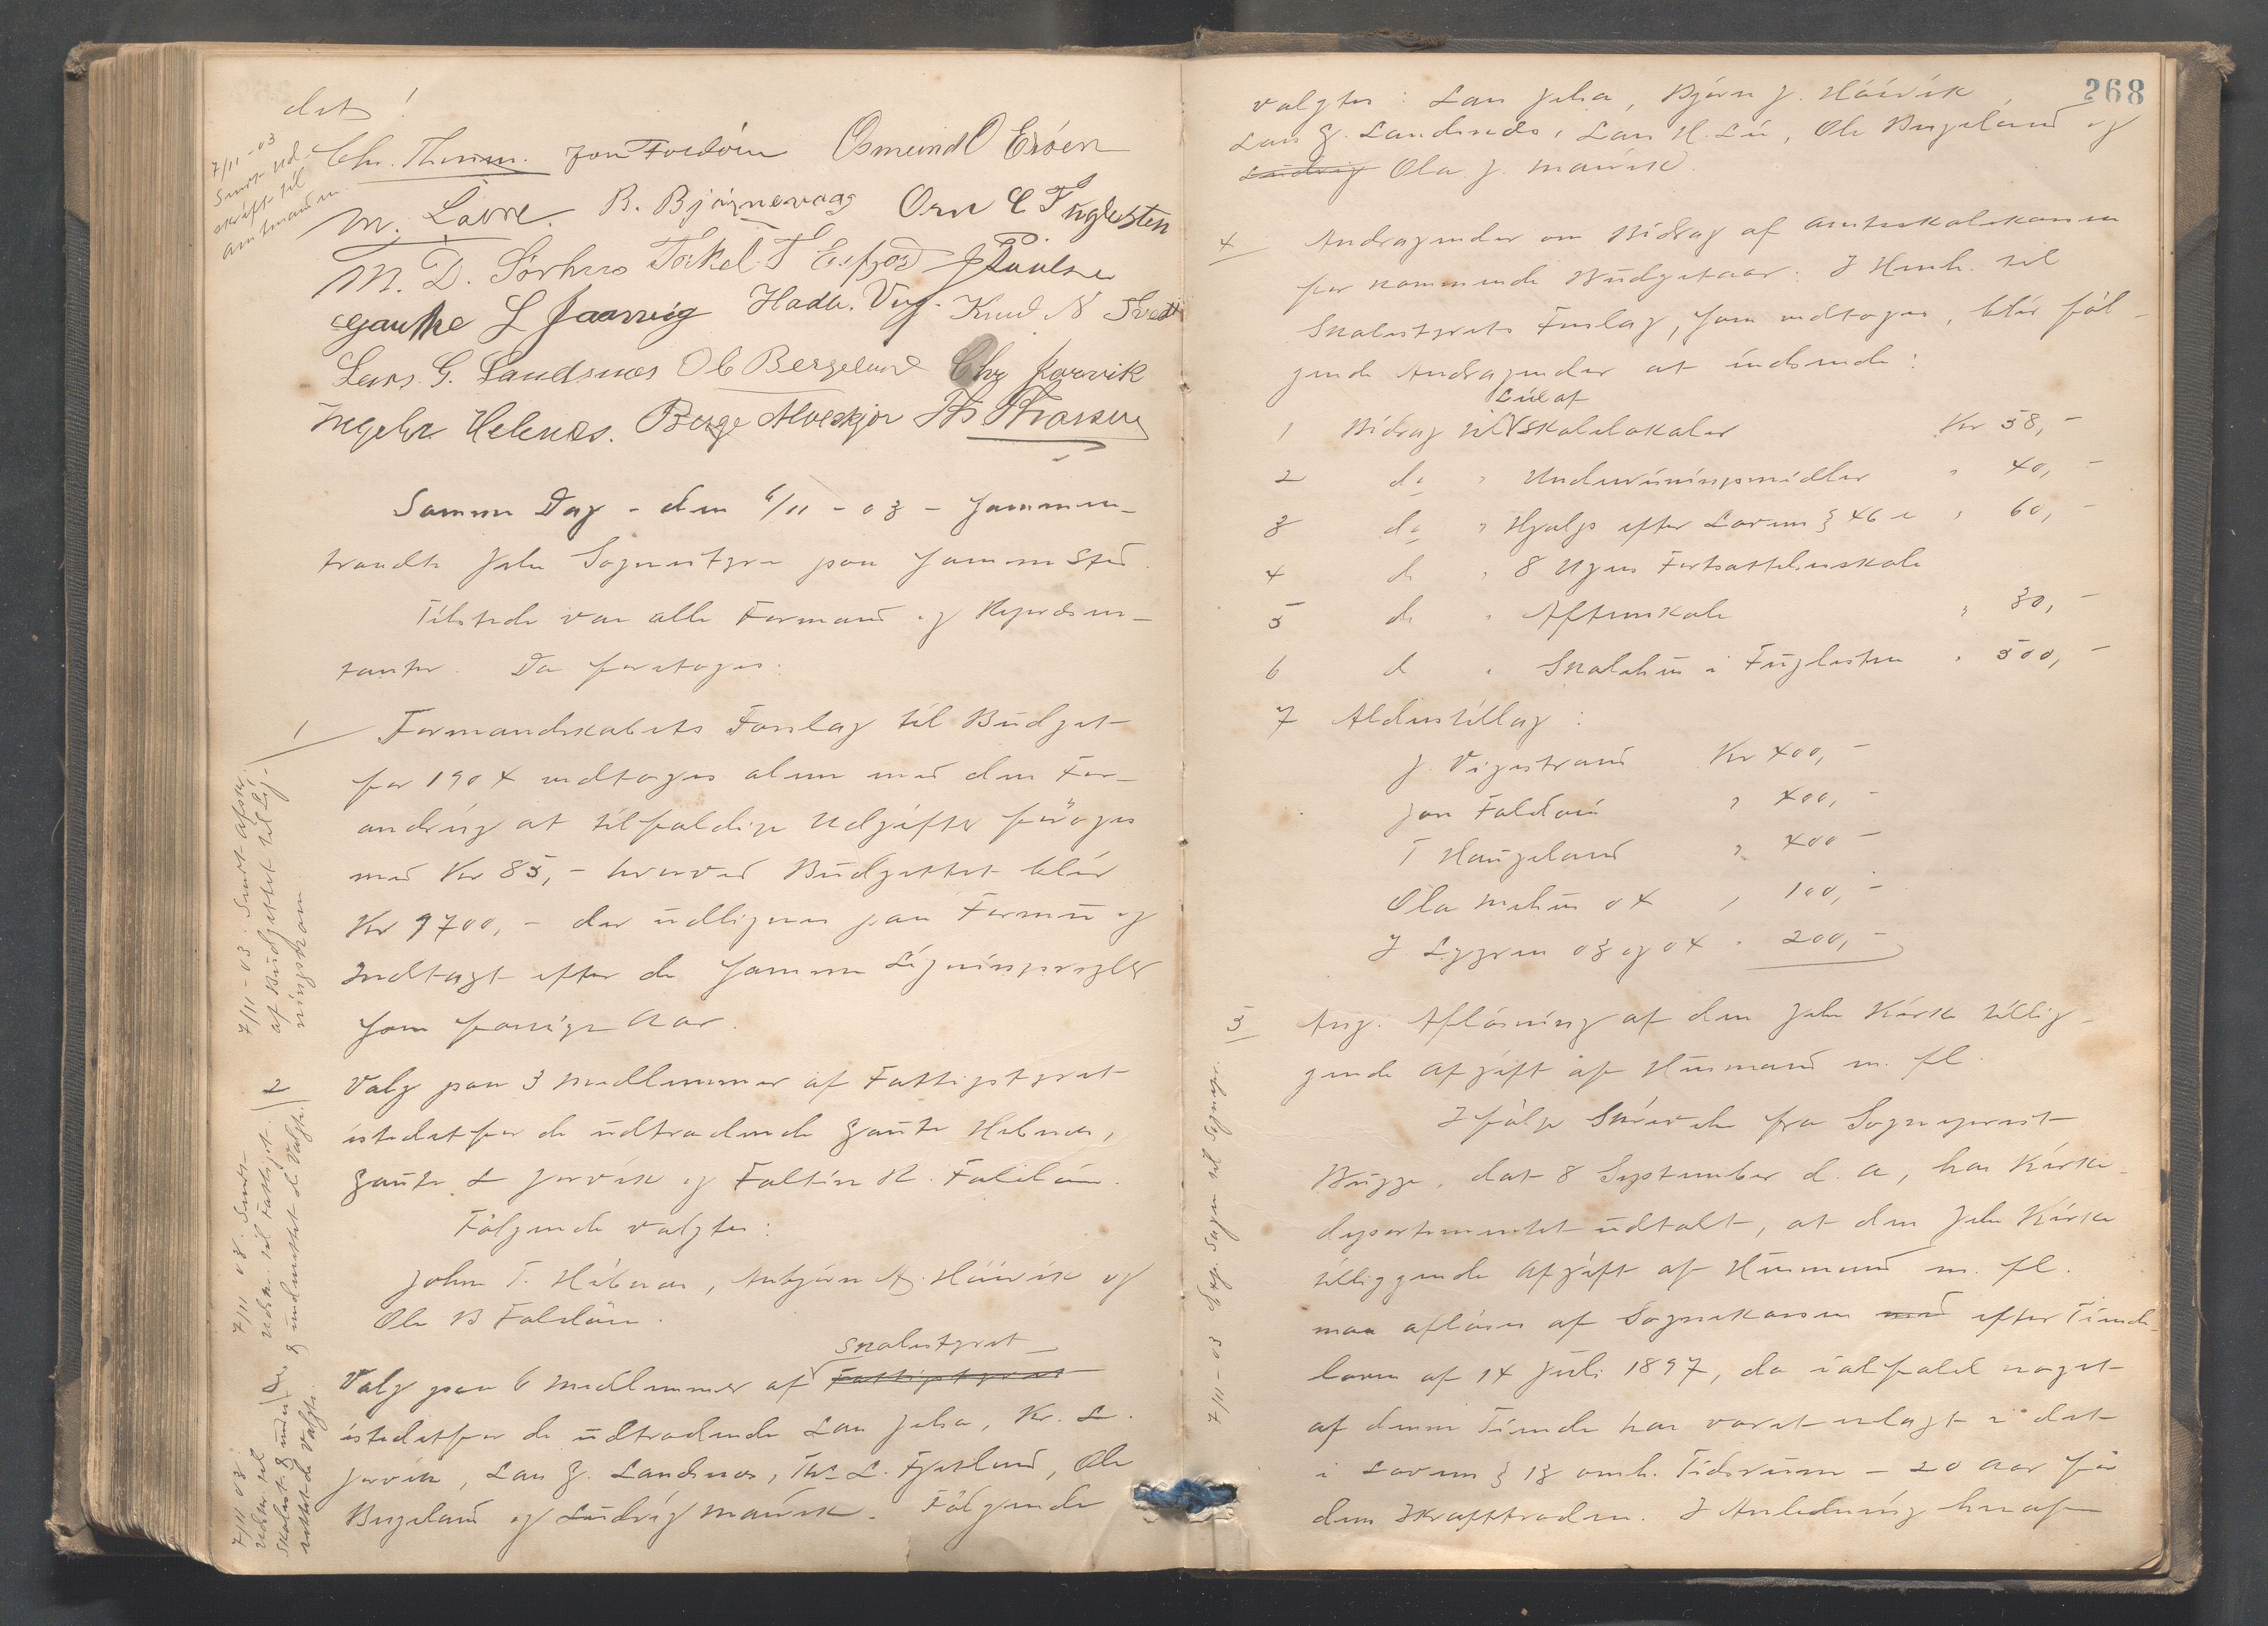 det!
7/11-03
Sendt Ud-
skrift til
Amtmanden.
Chr. Thorsen. Jon Foldöen Osmund O Eröen
M. Lavre. B. Björnevaag Orm E Fuglesten
M. D. Sörhus Torkel. T Eifjord J Poulsen
Gauthe L Jaarvig Hada. Vig. Knud N Tveit
Lars. G. Landsnæs Ole Bergeland Chr Jarvik
Ingebr. Helenæs. Børge Alveskjær Th Thorsen
Samme Dag - den 6/11 - 03 - sammen-
traadte Jelse Sognestyre paa samme Sted.
Tilstede var alle Formænd og Repræsen-
tanter. Da foretoges:
1 Formandskabets Forslag til Budget
for 1904 vedtoges alene med den For-
andring at tilfældige Udgifter foröges
med Kr 85,- hvorved Budgettet blir
Kr 9700,- der udlignes paa Formue og
Indtægt efter de samme Ligningsregler
som forrige Aar.
7/11-03. Sendt afskr.
af Budgettet til Lig-
ningskom.
2 Valg paa 3 Medlemmer af Fattigstyret
istedetfor de udtrædende Gaute Helenæs,
Gaute L Jorvik og Faltin R. Foldöen.
Fölgende valgtes:
John T. Helenæs, Anbjörn A. Höivik og
Ole B Foldöen.
7/11 03. Sendt
Udskr. til Fattigst.
og underrettet de Valgte.
3 skolestyret
Valg paa 6 Medlemmer af Fattigstyret
istedetfor de udtrædende Lars Jelsa, Kr. L.
Jorvik, Lars G. Landsnæs, Th. L. Fjetland, Ole
Bergeland og Ludvig Marvik. Fölgende
7/11 03.
Udskr. til
Skolest. og under-
rettet de Valgte.
268
valgtes: Lars Jelsa, Björn J. Höivik,
Lars G. Landsnæs, Lars H. Lie, Ole Bergeland og
Ludvig Ola J. Marvik.
4 Andragender om Bidrag af Amtsskolekassen
for kommende Budgetaar: I Henh. til
Skolestyrets Forslag, som vedtoges, blir föl-
gende Andragender at indsende:
Leie af
1 Bidrag til Skolelokaler Kr 58,-
2 do " Undervisningsmidler " 40,-
3 do " Hjælp efter Loven § 46 " 60,-
4 do " 8 Ugers Fortsættelsesskole
5 do " Aftenskole " 30,-
6 do " Skolehus i Fuglesten " 500,-
7 Alderstillæg:
J. Vigestrand Kr 400,-
Jon Foldöen " 400,-
T Haugeland " 400-
Ola Mehus 04 " 100,-
J Lyggren 03 og 04 " 200,-
5 Ang. Aflösning af den Jelse Kirke tillig-
gende Afgift af Husmænd m. fl.
Ifölge Skrivelse fra Sogneprest
Bugge, dat 8 September d. A, har Kirke-
departementet udtalt, at den Jelse Kirke
tilliggende Afgift af Husmænd m. fl.
maa aflöses af Sognekassen med efter Tiende-
loven af 14 Juli 1897, da ialfald noget
af denne Tiende har været erlagt i det
i Lovens § 13 omh. Tidsrum - 20 Aar för
dens Ikrafttræden. I Anledning heraf
7/11-03 Exp. Sagen til Sognepr.